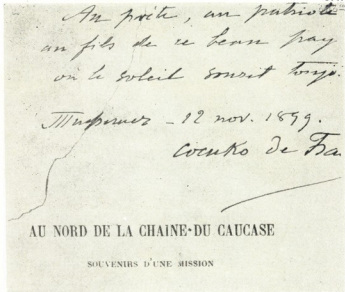 Au poète, au patriote
au fils de ce beau pay
où le soleil sourit toujo
12 nov. 1899.
de Ba
AU NORD DE LA CHAINE DU CAUCASE
SOUVENIRS D'UNE MISSION